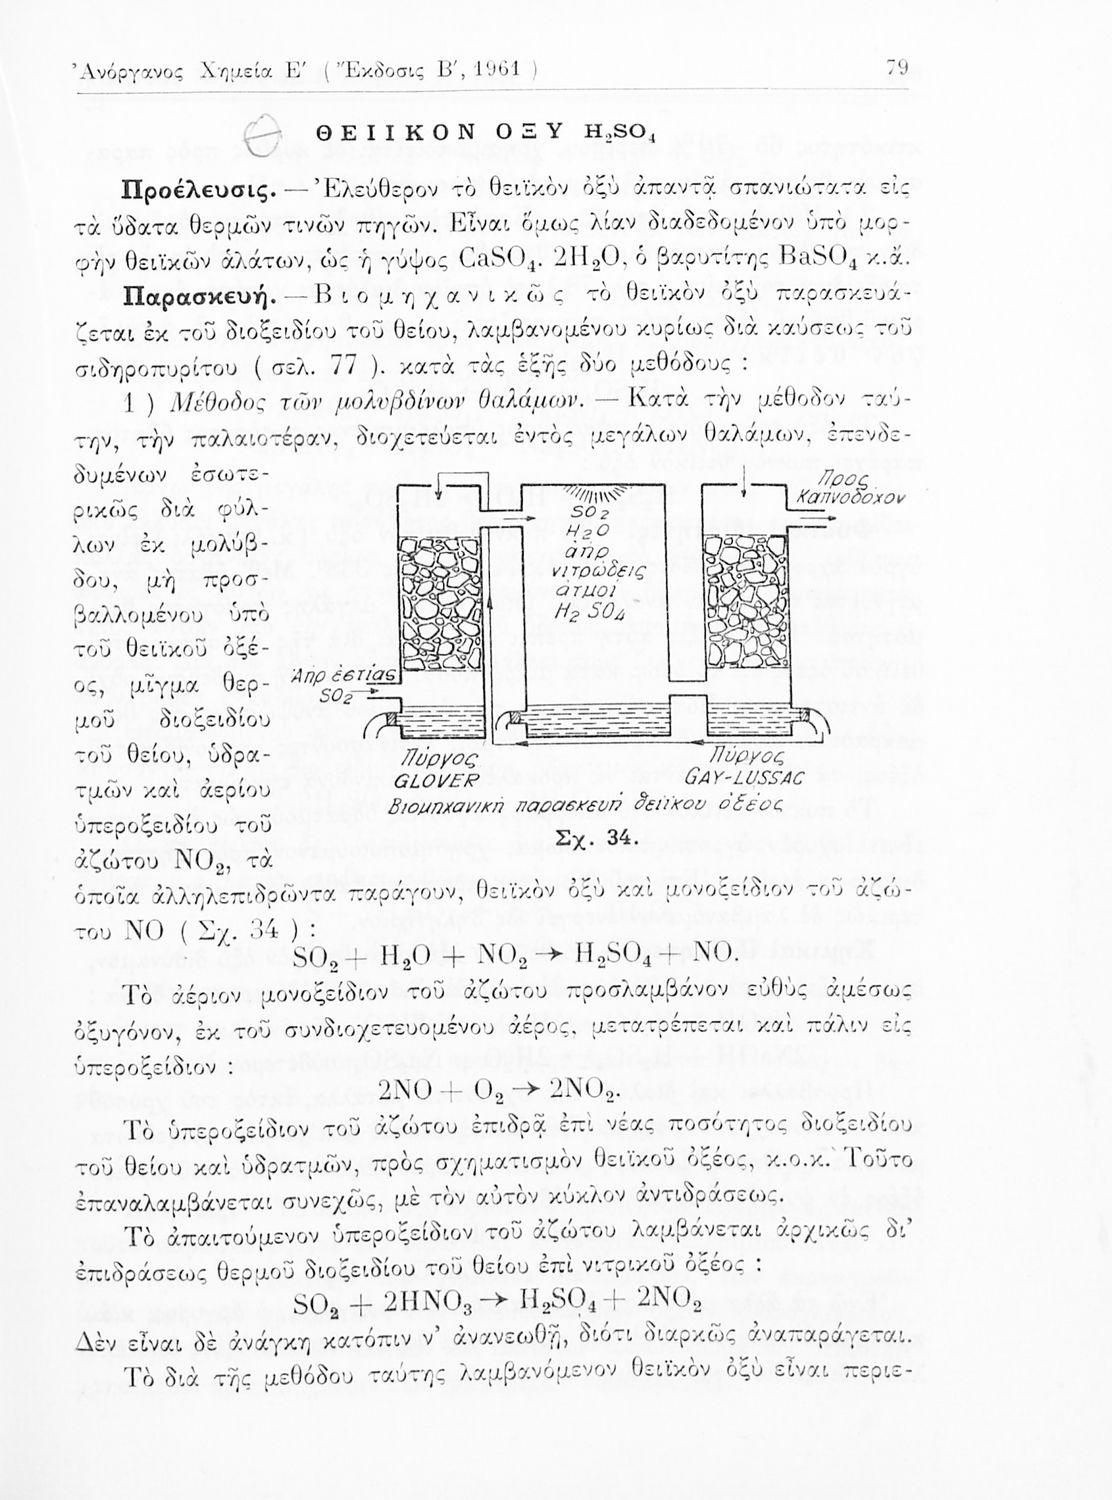 Ἀνόργανος Χημεία Ε′ ( Ἔκδοσις Β′, 1961 ) 79
ΘΕΙΙΚΟΝ ΟΞΥ H₂SO₄
Προέλευσις. — Ἐλεύθερον τὸ θειϊκὸν ὀξὺ ἀπαντᾷ σπανιώτατα εἰς
τὰ ὕδατα θερμῶν τινῶν πηγῶν. Εἶναι ὅμως λίαν διαδεδομένον ὑπὸ μορ-
φὴν θειϊκῶν ἁλάτων, ὡς ἡ γύψος CaSO₄. 2H₂O, ὁ βαρυτίτης BaSO₄ κ.ἄ.
Παρασκευή. — Βιομηχανικῶς τὸ θειϊκὸν ὀξὺ παρασκευά-
ζεται ἐκ τοῦ διοξειδίου τοῦ θείου, λαμβανομένου κυρίως διὰ καύσεως τοῦ
σιδηροπυρίτου ( σελ. 77 ). κατὰ τὰς ἑξῆς δύο μεθόδους :
1 ) Μέθοδος τῶν μολυβδίνων θαλάμων. — Κατὰ τὴν μέθοδον ταύ-
την, τὴν παλαιοτέραν, διοχετεύεται ἐντὸς μεγάλων θαλάμων, ἐπενδε-
δυμένων ἐσωτε-
ρικῶς διὰ φύλ-
λων ἐκ μολύβ-
δου, μὴ προσ-
βαλλομένου ὑπὸ
τοῦ θειϊκοῦ ὀξέ-
ος, μῖγμα θερ-
μοῦ διοξειδίου
τοῦ θείου, ὑδρα-
τμῶν καὶ ἀερίου
ὑπεροξειδίου τοῦ
ἀζώτου NO₂, τὰ
Πρὸς
Καπνοδόχον
SO₂
H₂O
ἀήρ
νιτρώδεις
ἀτμοί
H₂SO₄
Ἀὴρ ἑστίας
SO₂
Πύργος
GLOVER
Πύργος
GAY-LUSSAC
Βιομηχανικὴ παρασκευὴ θειϊκοῦ ὀξέος
Σχ. 34.
ὁποῖα ἀλληλεπιδρῶντα παράγουν, θειϊκὸν ὀξὺ καὶ μονοξείδιον τοῦ ἀζώ-
του NO ( Σχ. 34 ) :
SO₂ + H₂O + NO₂ → H₂SO₄ + NO.
Τὸ ἀέριον μονοξείδιον τοῦ ἀζώτου προσλαμβάνον εὐθὺς ἀμέσως
ὀξυγόνον, ἐκ τοῦ συνδιοχετευομένου ἀέρος, μετατρέπεται καὶ πάλιν εἰς
ὑπεροξείδιον :
2NO + O₂ → 2NO₂.
Τὸ ὑπεροξείδιον τοῦ ἀζώτου ἐπιδρᾷ ἐπὶ νέας ποσότητος διοξειδίου
τοῦ θείου καὶ ὑδρατμῶν, πρὸς σχηματισμὸν θειϊκοῦ ὀξέος, κ.ο.κ. Τοῦτο
ἐπαναλαμβάνεται συνεχῶς, μὲ τὸν αὐτὸν κύκλον ἀντιδράσεως.
Τὸ ἀπαιτούμενον ὑπεροξείδιον τοῦ ἀζώτου λαμβάνεται ἀρχικῶς δι’
ἐπιδράσεως θερμοῦ διοξειδίου τοῦ θείου ἐπὶ νιτρικοῦ ὀξέος :
SO₂ + 2HNO₃ → H₂SO₄ + 2NO₂
Δὲν εἶναι δὲ ἀνάγκη κατόπιν ν’ ἀνανεωθῇ, διότι διαρκῶς ἀναπαράγεται.
Τὸ διὰ τῆς μεθόδου ταύτης λαμβανόμενον θειϊκὸν ὀξὺ εἶναι περιε-